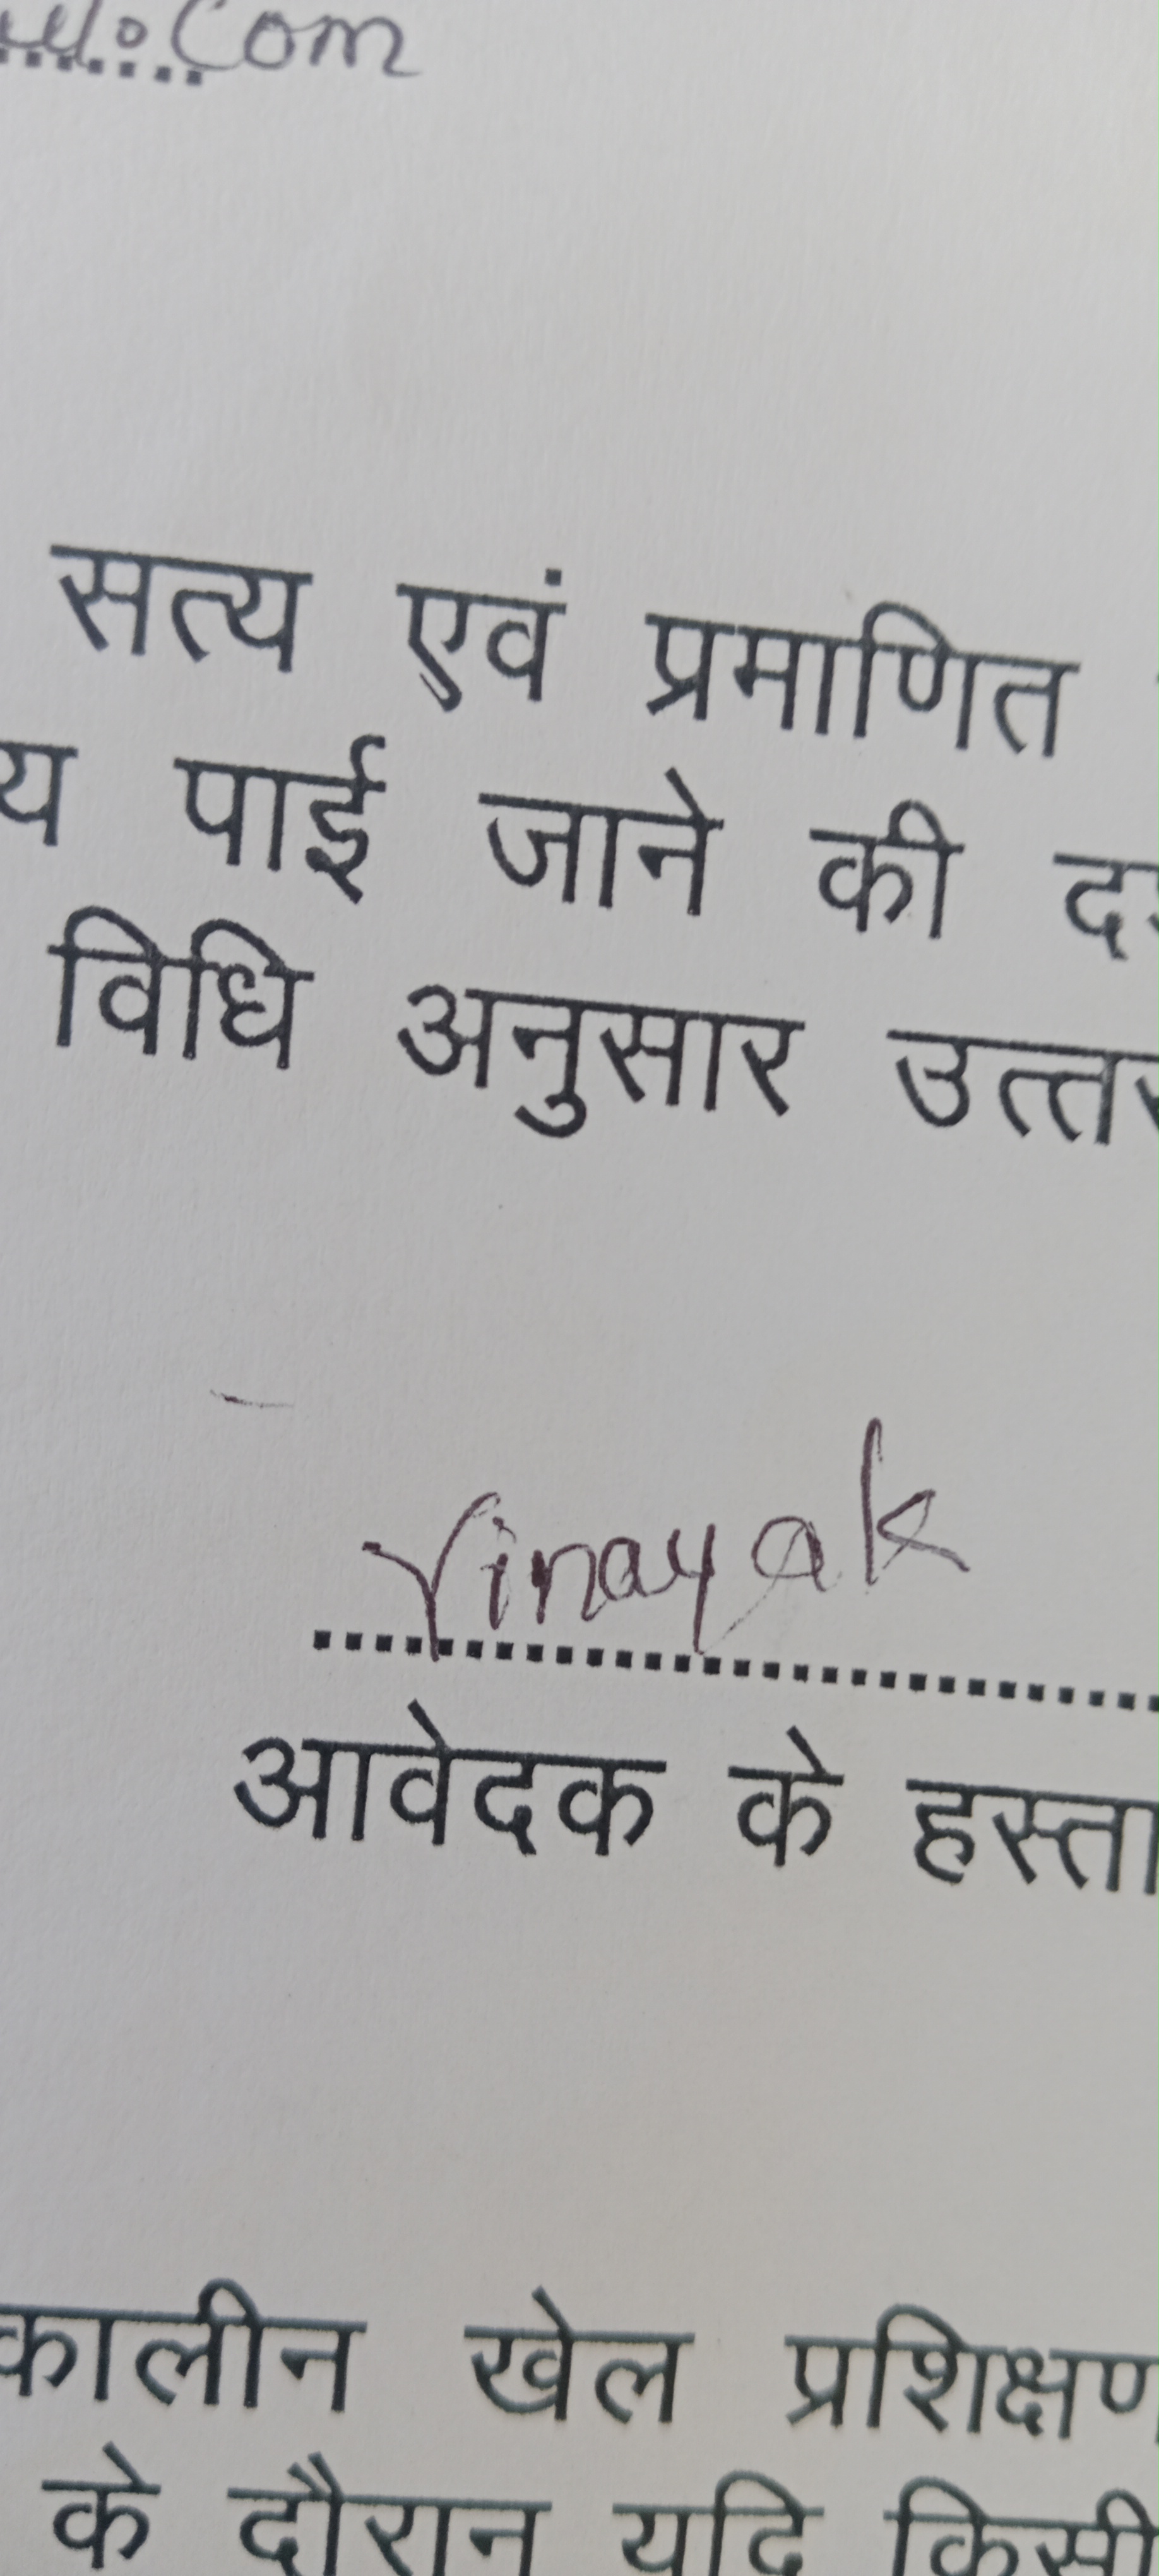 .com
सत्य एवं प्रमाणित
य पाई जाने की
विधि अनुसार
Vinayak
आवेदक के
कालीन खेल प्रशिक्षण
के दौरान यदि किसी